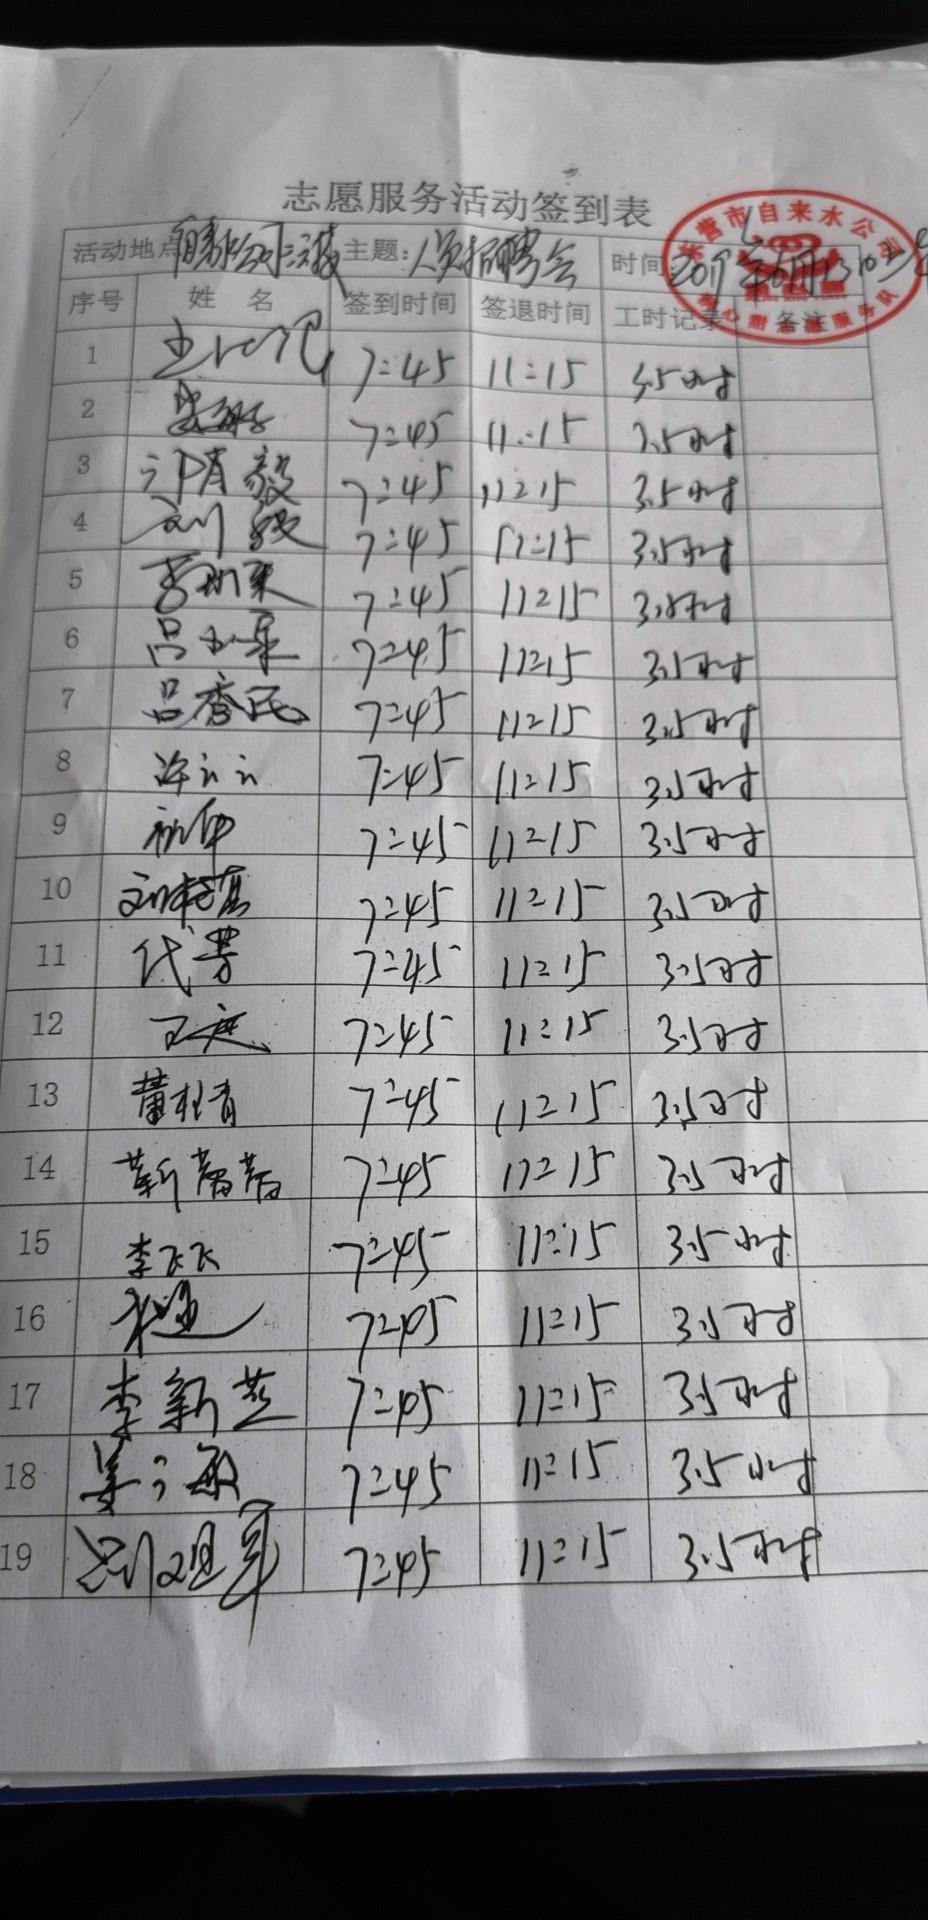 志愿服务活动签到表
东营市自来水公司
活动地点 主题：人员招聘会 时间
服务队
序号 姓 名 签到时间 签退时间 工时记录 备注
1 7:45 11:15 3.5小时
2 7:45 11:15 3.5小时
3 许清毅 7:45 11:15 3.5小时
4 7:45 11:15 3.5小时
5 7:45 11:15 3.5小时
6 7:45 11:15 3.5小时
7 吕秀民 7:45 11:15 3.5小时
8 许云云 7:45 11:15 3.5小时
9 7:45 11:15 3.5小时
10 7:45 11:15 3.5小时
11 代芳 7:45 11:15 3.5小时
12 7:45 11:15 3.5小时
13 董桂青 7:45 11:15 3.5小时
14 靳蕾蕾 7:45 11:15 3.5小时
15 李飞飞 7:45 11:15 3.5小时
16 7:45 11:15 3.5小时
17 李新芝 7:45 11:15 3.5小时
18 7:45 11:15 3.5小时
19 7:45 11:15 3.5小时